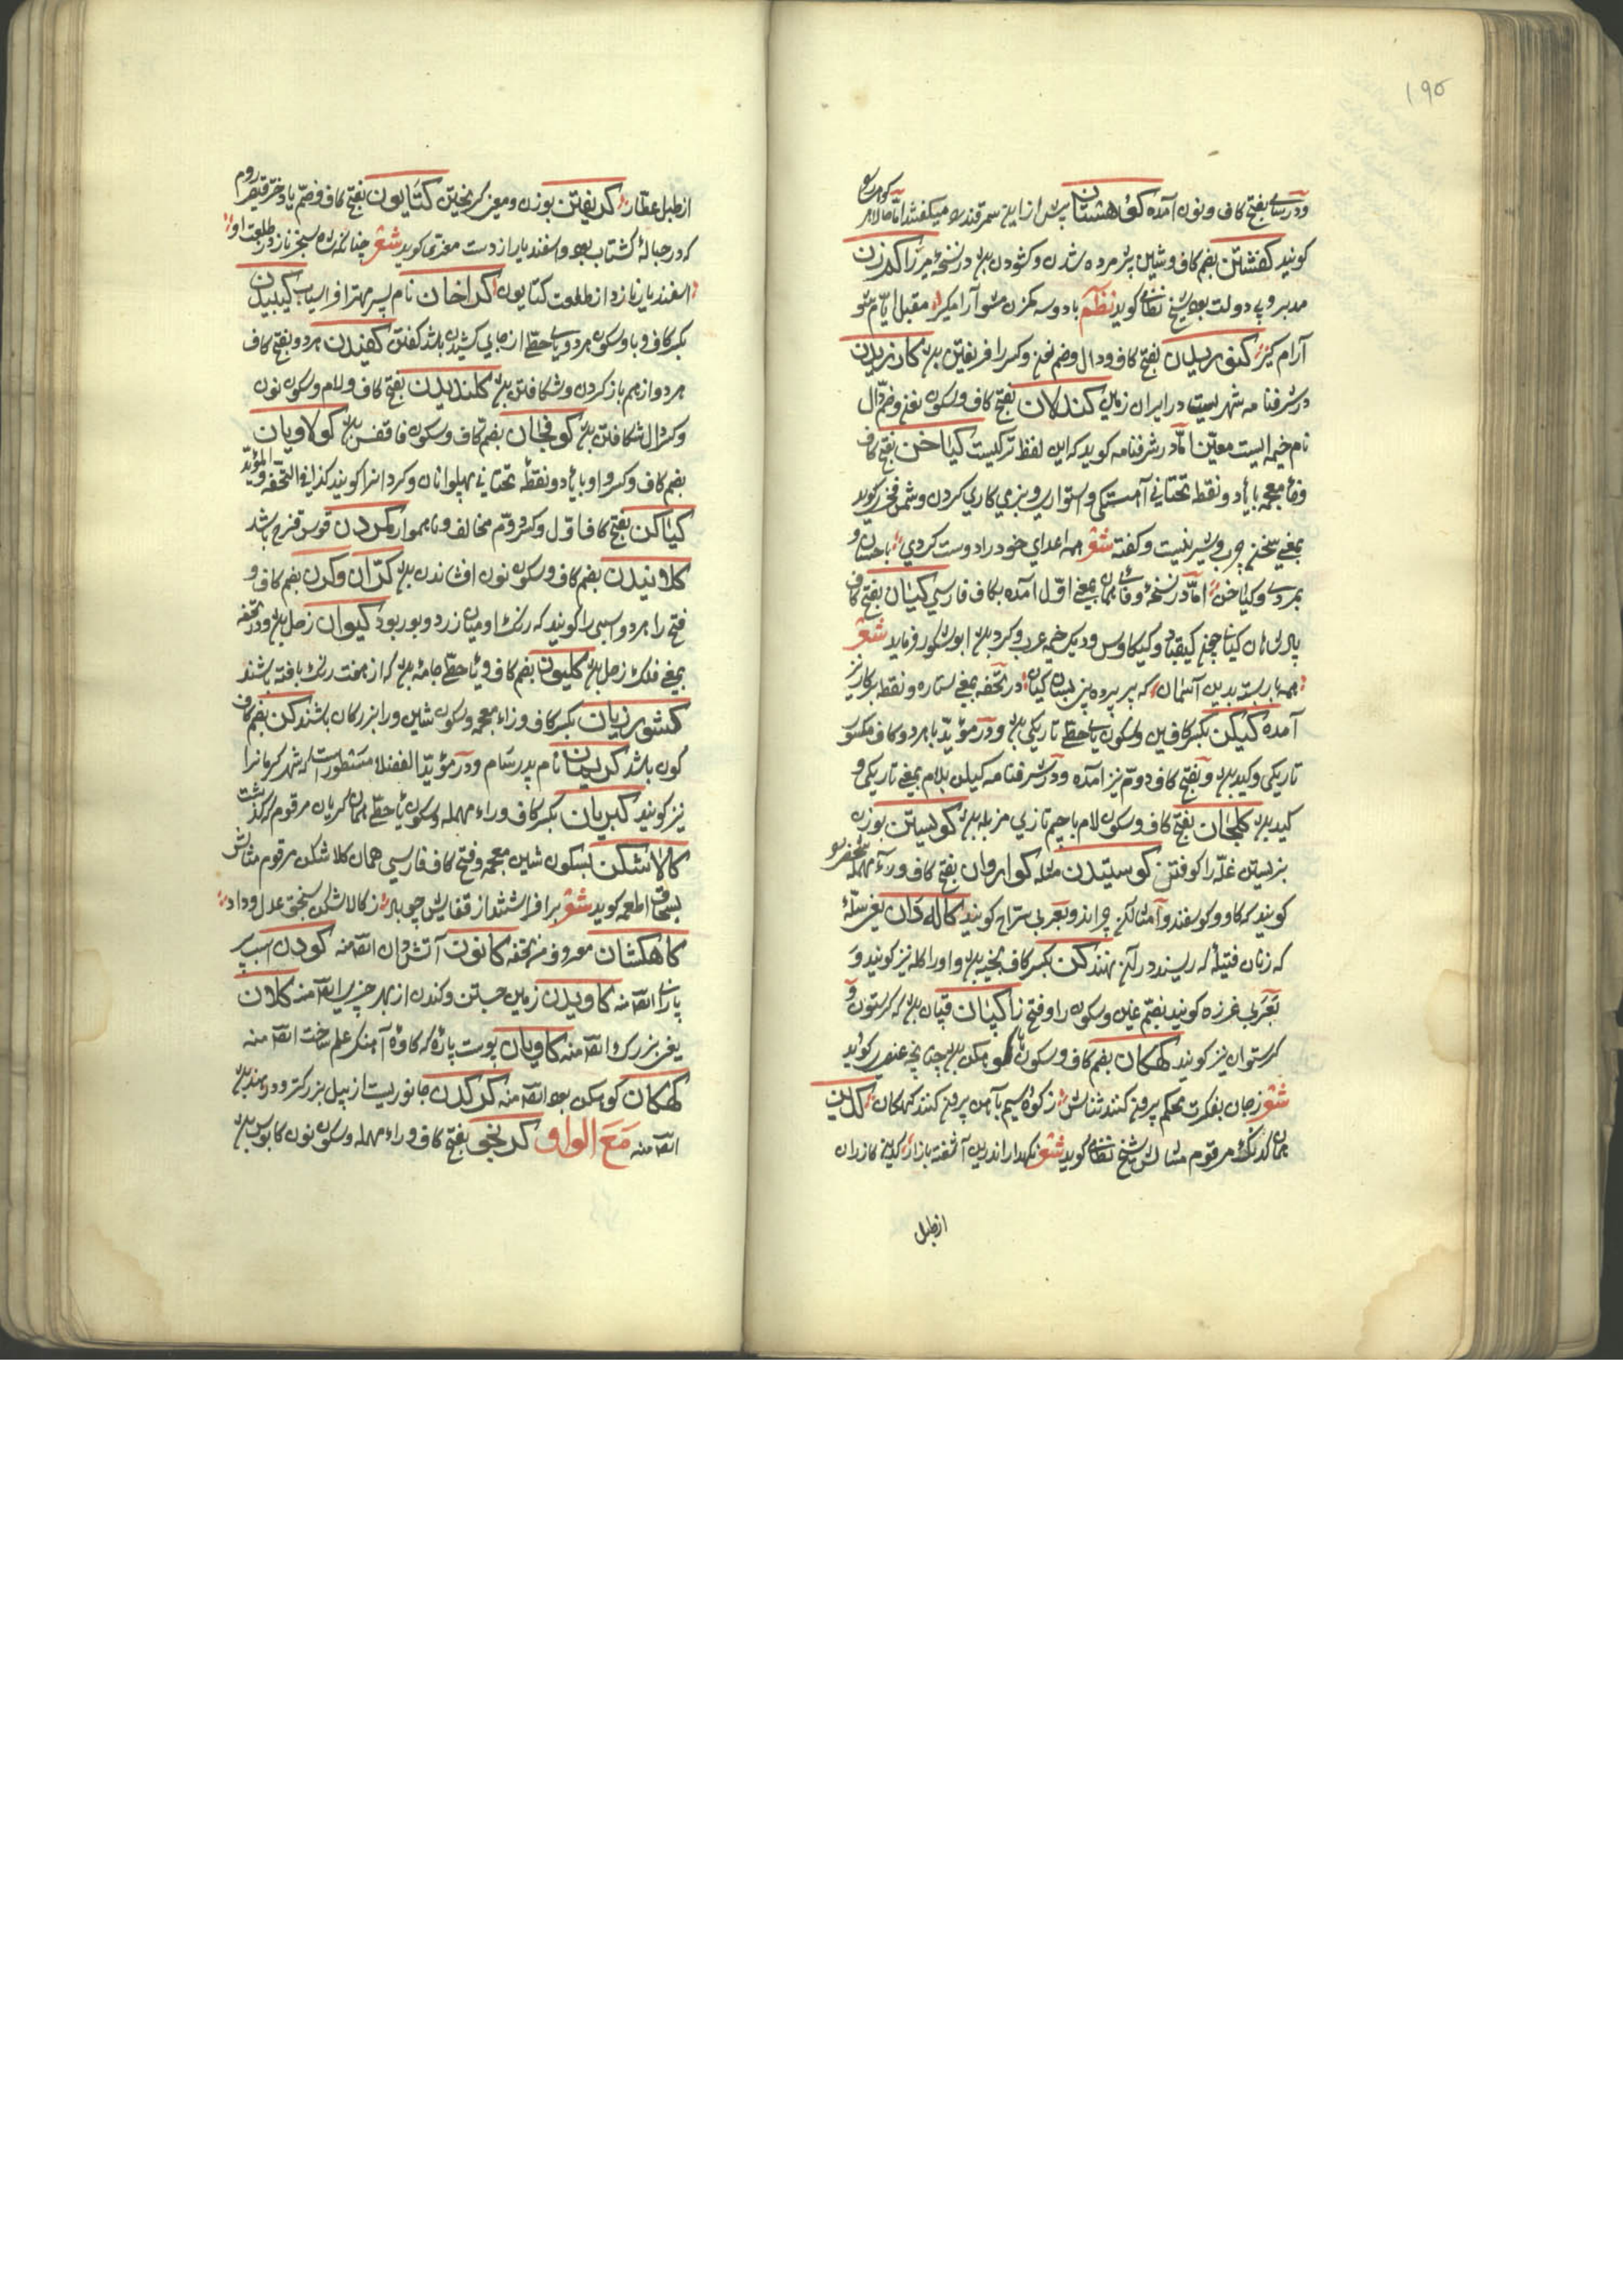 ١٩٥
بفتح کاف ونون آمده کوهشتان پیش ازین سمرقند را میگفتند اما حالا
کویند کفشتن بضم کاف وشین پژمرده شدن وکشودن در نسخهٔ میرزا
مدبر وبی دولت بود شیخ نظامی کوید نظم باد وسه کمزن مشو آرام کیر مقبل ایام شو
آرام کیر بفتح کاف ودال وضم وکسر را فریفتن
در شرفنامه شهریست در ایران زمین کندلان بفتح کاف وسکون وضم دال
نام خیمه ایست معین اما در شرفنامه کوید که این لفظ ترکیست کیاخن بفتح کاف
وخاء معجمه بایاء دو نقطه تحتانی آهستکی واستواری وبنرمی کاری کردن وشمس فخری کوید
بمعنی سخن چرب وشیرینست وکفته شعر همه اعدای خود را دوست کردی باحسان و
بمردی وکیاخن اما در نسخهٔ وفائی بمعنی اول آمده بکاف فارسی کیان بفتح کاف
پادشاهان کیانی یعنی کیقباد وکیکاوس ودیکر خیمه عرب وکرد ابو شکور فرماید شعر
همه باربسته بدین آسمان که بر پرده بینی بسان کیان در تحفه بمعنی ستاره ونقطه پرکار نیز
آمده کیکن بکسر کافین وسکون یاء حطی تاریکی ودر مؤید باهر دو کاف مکسور
تاریکی وبفتح کاف دوم نیز آمده ودر شرفنامه کیلن بلام بمعنی تاریکی و
کلجان بفتح کاف وسکون لام باجیم تازی مزبله کوسیتن بوزن
غله را کوفتن کوستیدن مثله کواروان بفتح کاف وراء مهمله
کویند که کاو وکوسفند وامثال چرانند وبعربی کویند کاله دان یعنی سلهٔ
که زنان فتیله که ریسند در آن نهند کن بکسر کاف واو را کله نیز کویند و
بعربی غرزه کویند بضم غین وسکون را وفتح زا کپان قپان که کرستون و
کرستوان نیز کویند کهکان بضم کاف وسکون ها کوه کن چنانچه عنصری کوید
شعر زجان بفکرت محکم برون کنند ثنایش زکوه سیم بآهن برون کنند کهکان کدین
همان کدنک مرقوم مثالش شیخ نظامی کوید شعر نکهدار اندرین آشفته بازار کدین کازران
از طبل
از طبل عطار کریفتن بوزن ومعنی کریختن کتایون بفتح کاف وضم یا دختر قیصر روم
که در حبالهٔ کشتاسب بود واسفندیار ازوست معزی کوید شعر چنانکه شاه سنجر نازد از طلعت او
اسفندیار نازد از طلعت کتایون کراخان نام پسر مهتر افراسیاب کیبیدن
بکسر کاف وبا وسکون هر دو یاء حطی از جای کشیدن باشد کفتن کفیدن هر دو بفتح کاف
هر دو از هم باز کردن وشکافتن کلندیدن بفتح کاف ولام وسکون نون
وکسر دال شکافتن کوفجان بضم کاف وسکون فا قفس کولاویان
بضم کاف وکسر واو بایاء دو نقطه تحتانی پهلوانان وکردانرا کویند کذا فی التحفه والمؤید
کیاکن بفتح کاف اول وکسر دوم مخالف وناهموار کمردن قوس قزح باشد
کلانیدن بضم کاف وسکون نون افشاندن کران وکرن بضم کاف و
فتح را هر دو اسبی را کویند که رنک او میان زرد وبور بود کیوان زحل ودر تحفه
بمعنی فلک زحل کلیون بضم کاف ویاء حطی جامه که از هفت رنک بافته باشند
کشورزیان بکسر کاف وزاء معجمه وسکون شین ورا بزرکان باشند کن بضم کاف
کون باشد کریمان نام پدر سام ودر مؤید الفضلا مسطورست که شهر کرمانرا
نیز کویند کبریان بکسر کاف وراء مهمله وسکون یاء حطی همان کریان مرقوم که کذشت
کالاشکن بسکون شین معجمه وفتح کاف فارسی همان کلاشکن مرقوم مثالش
بسحاق اطعمه کوید شعر برافراشتند از قفایش چپ باله ز کالاشکن سنجق عدل وداد
کاهکشان معروف من تحفه کانون آتش دان انتهی منه کودن اسب
پارای انتهی منه کاویدن زمین جستن وکندن از بهر چیزی انتهی منه کلان
یعنی بزرک انتهی منه کاویان پوست پاره که کاوه آهنکر علم ساخت انتهی منه
کهکان کوه کن بود انتهی منه کرکدن جانوریست از پیل بزرکتر
انتهی منه مع الواو کرنجو بفتح کاف وراء مهمله وسکون نون کابوس